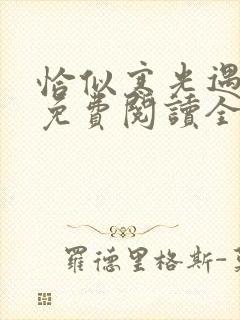 恰似寒光遇
免費閱讀全
羅德里格斯-